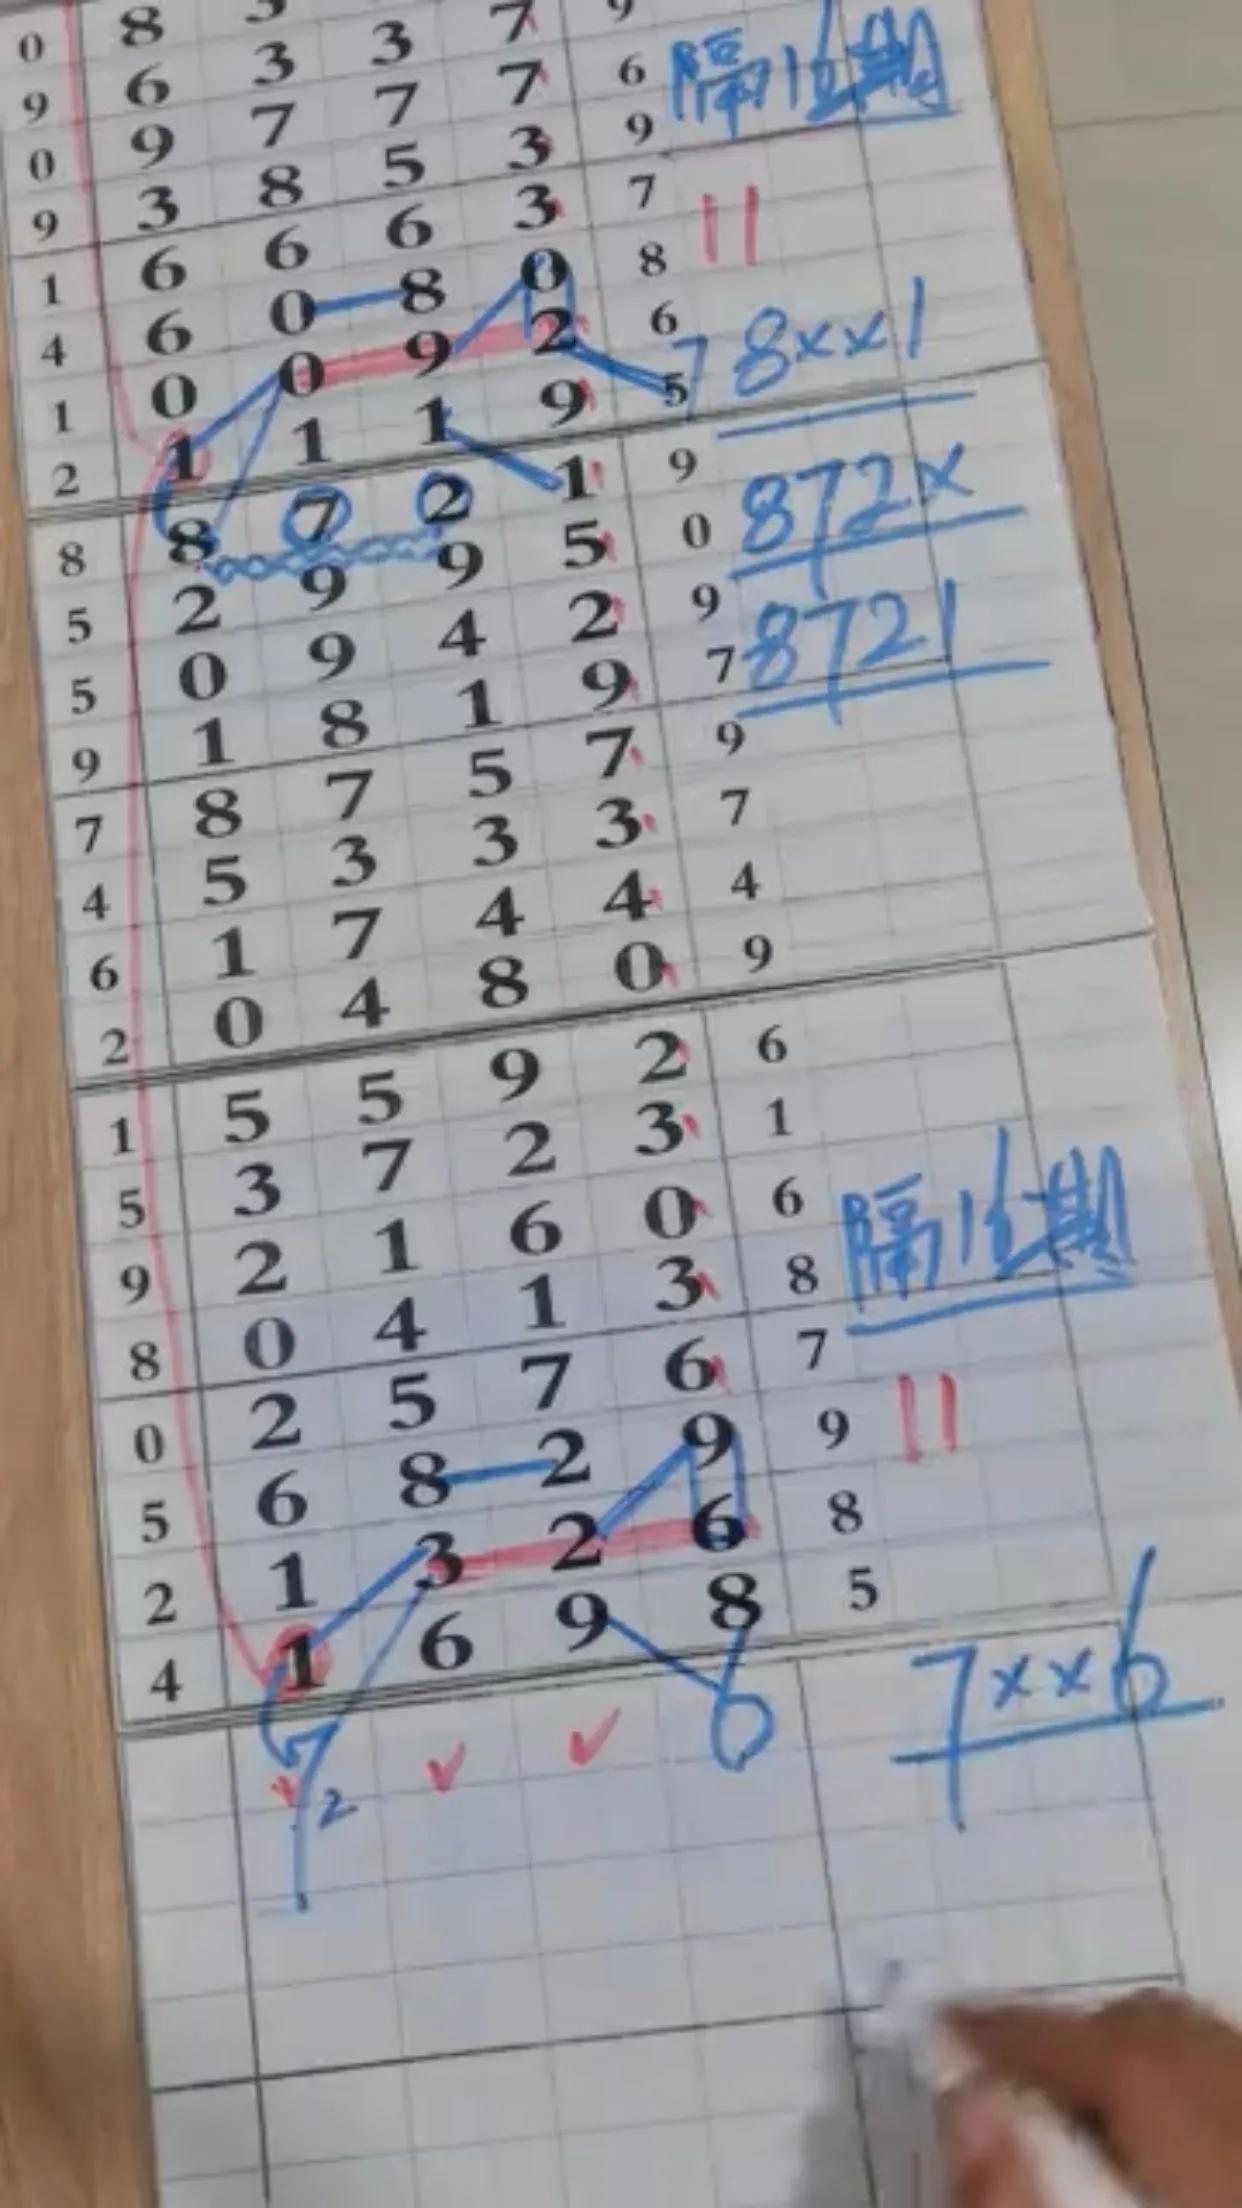 0 8 3 7 9
9 6 3 3 7 6 隔15期
0 9 7 7 3 9
9 3 8 5 3 7
1 6 6 6 0 8
4 6 0 8 2 6 7 8xx1
1 0 0 9 9 5
2 1 1 1 1 9 872x
8 8 7 2 5 0
5 2 9 9 2 9 8721
5 0 9 4 9 7
9 1 8 1 7 9
7 8 7 5 3 7
4 5 3 3 4 4
6 1 7 4 0 9
2 0 4 8
1 5 5 9 2 6
5 3 7 2 3 1
9 2 1 6 0 6 隔15期
8 0 4 1 3 8
0 2 5 7 6 7
5 6 8 2 9 9
2 1 3 2 6 8
4 1 6 9 8 5
7 2 6 7xx6